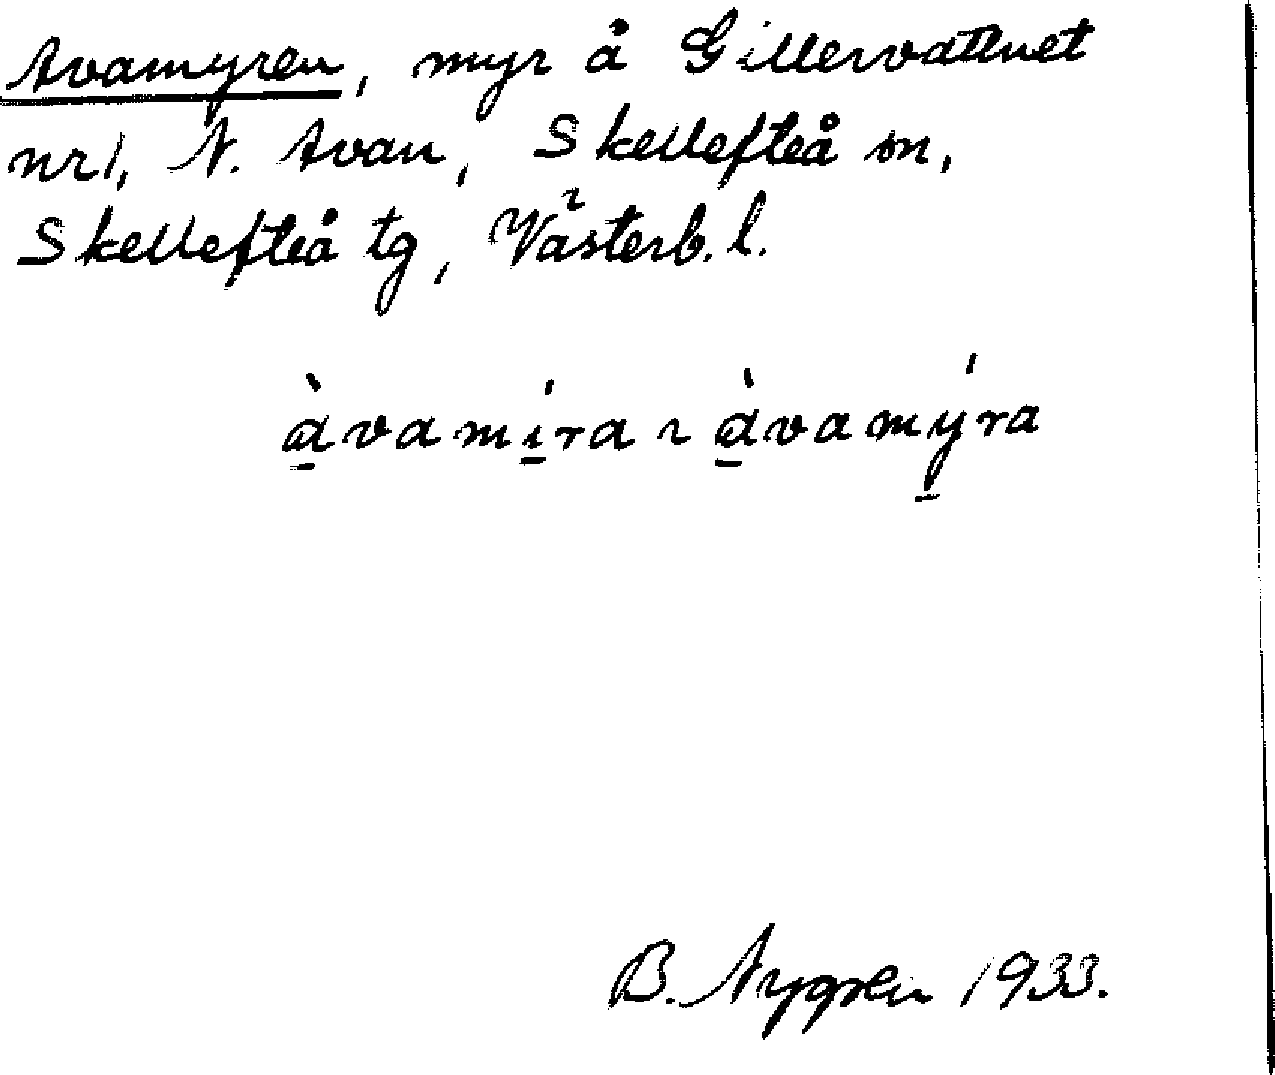 Avamyren, myr å Gillervattnet
nr 1, N. Avan, Skellefteå sn,
Skellefteå tg, Västerb. l.
à̱vamí̱ra ɿ à̱vamý̱ra
B. Nygren 1933.